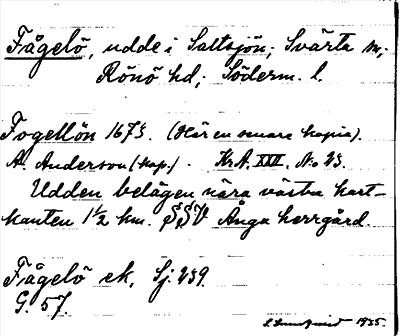 Fågelö, udde i Saltsjön; Svärta sn;
Rönö hd; Söderm. l.
Fogellön 1673. (Här en senare kopia).
A. Anderson (kop.). Kr.A. XVII. No 23.
Udden belägen nära västra kart-
kanten 1 1/2 km. SSV Ånga herrgård.
Fågelö ek, Sj: 239.
G. 57.
1935.